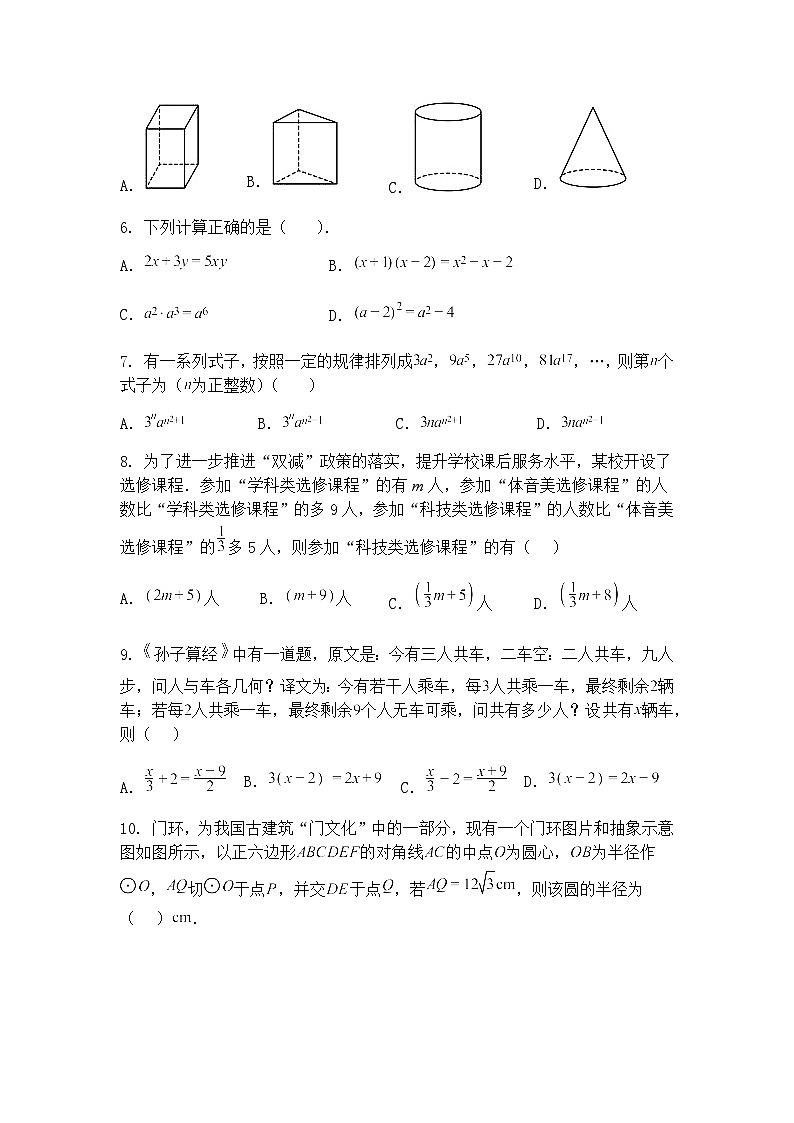 A. B. C. D.
6. 下列计算正确的是( ).
A. 2x+3y=5xy B. (x+1)(x-2)=x²-x-2
C. a²·a³=a⁶ D. (a-2)²=a²-4
7. 有一系列式子,按照一定的规律排列成3a²,9a⁵,27a¹⁰,81a¹⁷,…,则第n个
式子为(n为正整数)( )
A. 3ⁿa^{n²+1} B. 3ⁿa^{n²-1} C. 3na^{n²+1} D. 3na^{n²-1}
8. 为了进一步推进“双减”政策的落实,提升学校课后服务水平,某校开设了
选修课程.参加“学科类选修课程”的有 m 人,参加“体音美选修课程”的人
数比“学科类选修课程”的多 9 人,参加“科技类选修课程”的人数比“体音美
选修课程”的1/3多 5 人,则参加“科技类选修课程”的有( )
A. (2m+5)人 B. (m+9)人 C. (1/3m+5)人 D. (1/3m+8)人
9.《孙子算经》中有一道题,原文是:今有三人共车,二车空:二人共车,九人
步,问人与车各几何?译文为:今有若干人乘车,每3人共乘一车,最终剩余2辆
车;若每2人共乘一车,最终剩余9个人无车可乘,问共有多少人?设共有x辆车,
则( )
A. x/3+2=(x-9)/2 B. 3(x-2)=2x+9 C. x/3-2=(x+9)/2 D. 3(x-2)=2x-9
10. 门环,为我国古建筑“门文化”中的一部分,现有一个门环图片和抽象示意
图如图所示,以正六边形ABCDEF的对角线AC的中点O为圆心,OB为半径作
⊙O,AQ切⊙O于点P,并交DE于点Q,若AQ=12√3cm,则该圆的半径为
( )cm.